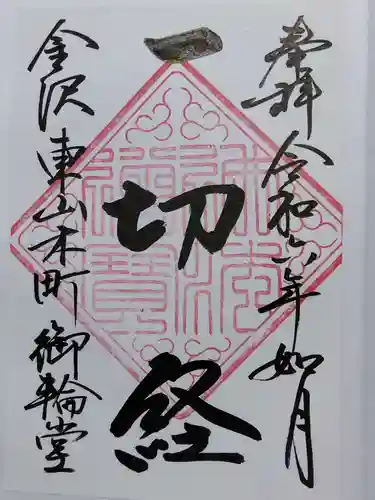 奉拝
令和六年如月
一切経
金沢東山木町御輪堂